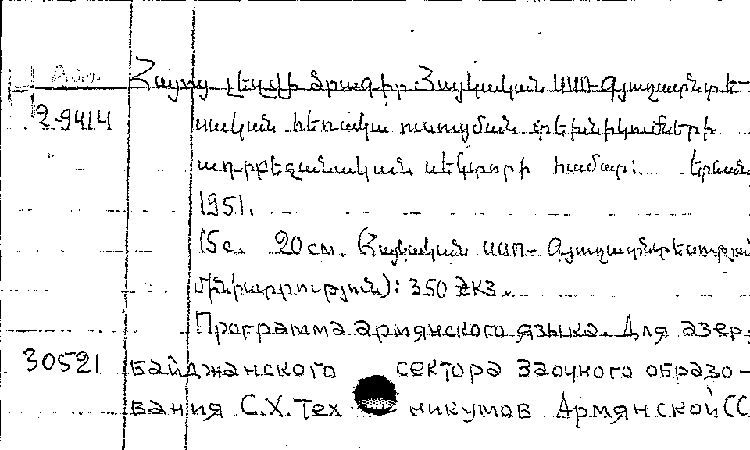 Հայոց լեզվի ծրագիր Հայկական ՍՍՌ Գյուղատնտե-
2-9414 սական հեռակա ուսուցման տեխնիկումների
ադրբեջանական սեկտորի համար: Երևան
1951.
15с. 20см. (Հայկական ՍՍՌ Գյուղատնտեսության
մինիստրություն): 350 экз.
Программа армянского языка. Для азер-
30521 байджанского сектора заочного образо-
вания С.Х.Тех никумов Армянской СС